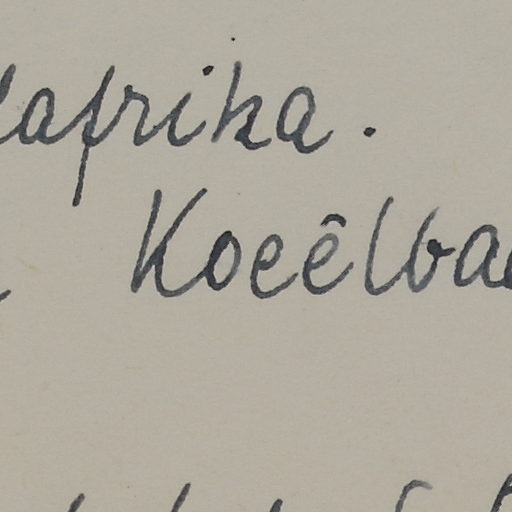 afrika.
Koeêlba